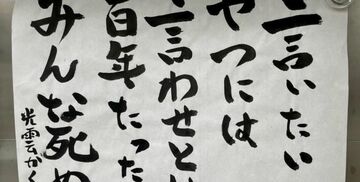 言いたい
やつには
言わせとけ
百年たった
みんな死ぬ
光雲かく